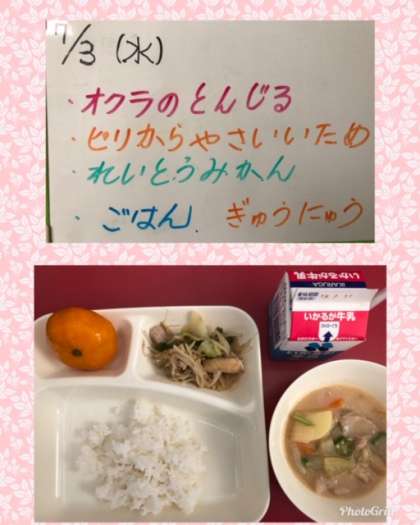 7/3 (水)
・オクラのとんじる
・ピリからやさいいため
・れいとうみかん
・ごはん. ぎゅうにゅう
いかるが牛乳
IKARUGA
いかるが牛乳
PhotoGrid